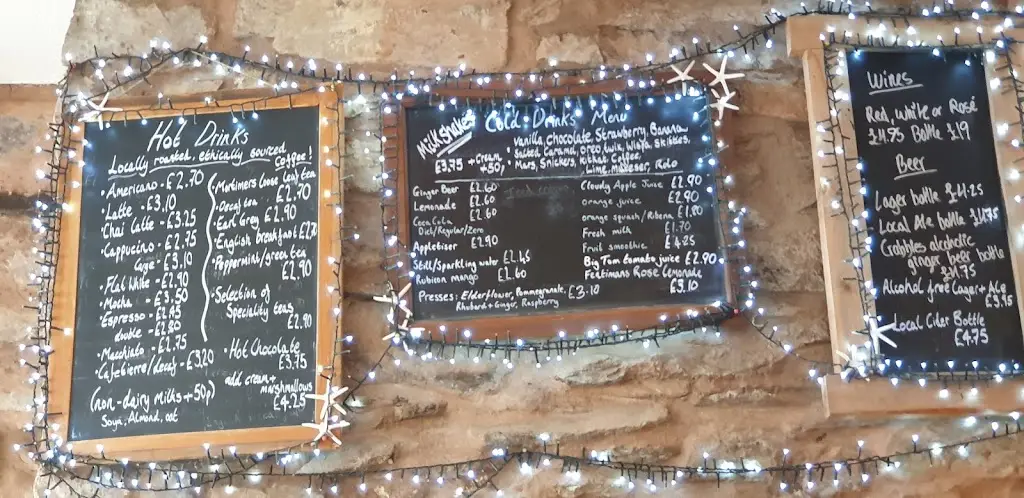 Hot Drinks
Locally roasted, ethically sourced
Coffee!
• Americano - £2.70
• Latte - £3.10
• Chai Latte - £3.25
• Cappucino - £2.75
Large £3.10
• Flat White - £2.90
• Mocha - £3.50
• Espresso - £2.45
double - £2.80
• Macchiato - £2.75
• Cafetierre/decaf - £3.20
(non-dairy milks +50p)
Soya, Almond, oat
Mortimers loose leaf tea
£2.70
Decaf tea - £2.70
• Earl Grey - £2.90
• English breakfast
• Peppermint/green tea
£2.90
• Selection of
Speciality teas
£2.90
• Hot Chocolate
£3.75
add cream +
marshmallows
£4.25
Milkshakes
Cold Drinks Menu
£3.75 + Cream
+50p
Vanilla, chocolate, Strawberry, Banana
Salted Caramel, Oreo, twix, Wispa, Skittles
Mars, Snickers, Kitkat, Coffee
Lime, malteser, Rolo
Ginger Beer £2.60
Lemonade £2.60
Coca Cola £2.60
Diet/Regular/Zero
Appletiser £2.90
Still/Sparkling water £2.45
Rubicon mango £2.60
Cloudy Apple Juice £2.90
Orange juice £2.90
orange squash / Ribena £1.80
Fresh milk £1.70
Fruit smoothie £4.25
Big Tom tomato juice £2.90
Fentimans Rose Lemonade
£3.10
Presses: Elderflower, Pommegranate, £3.10
Rhubarb + Ginger, Raspberry
Wines
Red, White or Rosé
£4.75 Bottle £19
Beer
Lager bottle £4.25
Local Ale bottle £4.75
Crabbies alcoholic
ginger beer bottle
£4.75
Alcohol free Lager + Ale
£3.95
Local Cider Bottle
£4.75